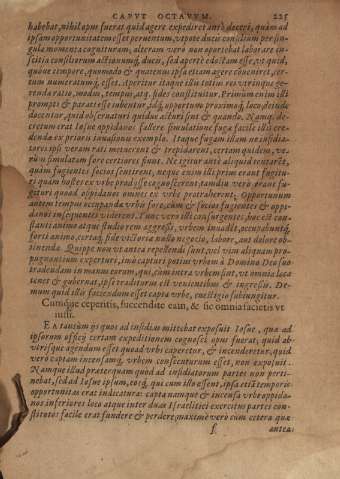 CAPVT OCTAVVM. 225
habebat, nihil opus fuerat quid agere expediret aut deceret, quàm ad
ipsam opportunitatem esset perventum, utpote duces consilium per sin-
gula momenta cogniturum, alteram vero non oportebat laborare in-
scitia consiliorum actionumque ducis, sed aperte edoctam esse, ut quid,
quove tempore, quomodo & quatenus ipsa etiam agere conveniret, cer-
tum numeratumque esset. Aperitur itaque illi totius res utrinque ge-
rendæ ratio, modus, tempus, atque fides constituitur. Primum enim illi
prompti & parati esse iubentur, idque opportuno proximoque loco, deinde
docentur, quid observaturi quidve acturi sint & quando.
decretum erat Iosue oppidanos fallere simulatione fuga facile illis cre-
denda ex prioris inanisque exemplo. Itaque fugam illam ne insidia-
tores ipsi veram rati metuerent & trepidarent, certam quidem, ve-
rum simulatam fore certiores fiunt. Ne igitur ante aliquid tentarent,
quàm fugientes socios sentirent, neque enim illi prius erant fugitu-
ri quàm hostes ex urbe prodiisse cognoscerent, tandiu vero erant fu-
gituri quoad oppidanos omnes ex urbe protraherent. Opportunum
autem tempus occupandæ urbis fore, cùm & socios fugientes & oppi-
danos insequentes viderent. Tunc vero illi consurgentes, hoc est con-
stanti animo atque studio rem aggressi, urbem invadite, occupabuntque,
forti animo, certaque fide victoria nullo negocio, labore, aut dolore ob-
tinenda. Quippe non vi antea repellendi sunt, vel vim aliquam pro-
pugnantium experturi, imò capturi potius urbem à Domino Deo suo
tradendam in manus eorum, qui, cùm intra urbem sint, ut omnia loca
tenet & gubernat, ipse traditurus est venientibus & ingressis. De-
mum quid illis faciendum esset capta urbe, contestim subiungitur.
Cumque ceperitis, succendite eam, & sic omnia facietis ut
iussi.
EA tantùm quos ad insidias mittebat exposuit Iosue, quæ ad
ipsorum officij certam expeditionem cognosci opus fuerat, quid ab
utrisque agendum esset quoad urbs caperetur, & incenderetur, quid
vero captam incensamque urbem consecuturum esset, non exposuit.
Namque illud præter quàm quod ad insidiatorum partes non perti-
nebat, sed ad Iosue ipsum, eosque qui cum illo essent, ipsa etiam temporis
opportunitas erat indicatura: capta namque & incensa urbe oppida-
nos inferiores loco atque inter duas Israelitici exercitus partes con-
stitutos facile erat fundere & perdere, maxime vero cùm cetera quæ
f. antea: